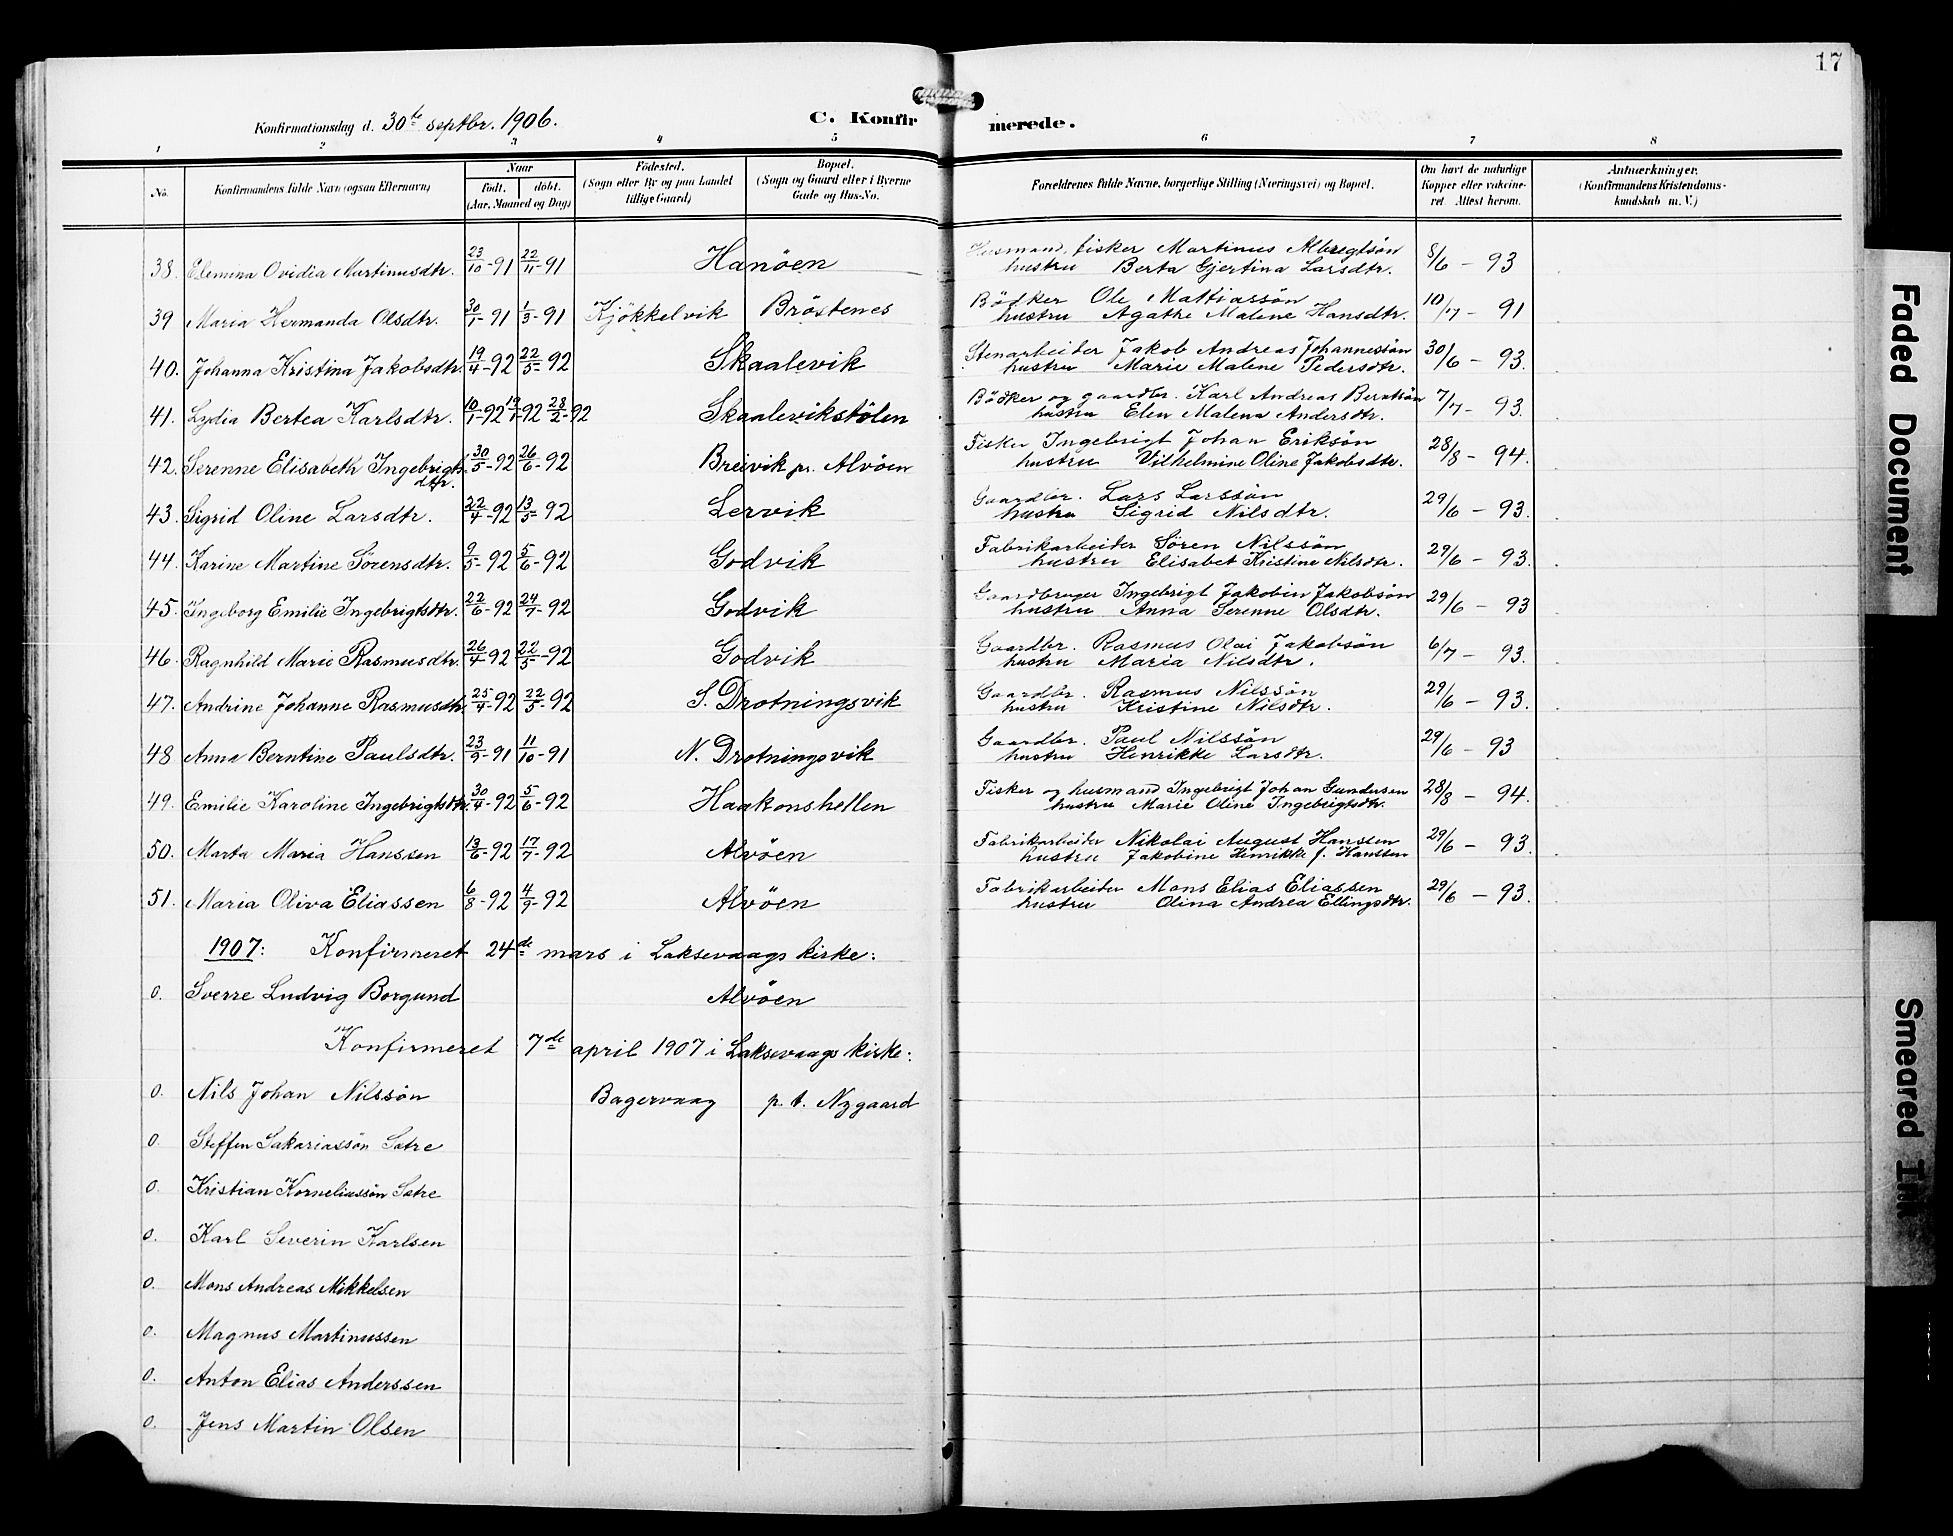 17
Konfirmationsdag d. 30te septbr. 1906.
C. Konfirmerede.
1 2 3 4 5 6 7 8
No.
Konfirmandens fulde Navn (ogsaa Efternavn)
Naar
født. døbt.
(Aar, Maaned og Dag)
Fødested.
(Sogn eller By og paa Landet
tillige Gaard)
Bopæl.
(Sogn og Gaard eller i Byerne
Gade og Hus-No.
Forældrenes fulde Navne, borgerlige Stilling (Næringsvei) og Bopæl.
Om havt de naturlige
Kopper eller vakcine-
ret. Attest herom.
Anmærkninger.
(Konfirmandens Kristendoms-
kundskab m. V.)
38. Elemina Ovidia Martinusdtr. 23/10-91 22/11-91 Hanöen Husmand, fisker Martinus Albregtsön 8/6 - 93
hustru Berta Gjertina Larsdtr.
39 Maria Hermanda Olsdtr. 30/1-91 1/3-91 Kjökkelvik Bröstenes Bödker Ole Mattiassön 10/7 - 91
hustru Agathe Malene Hansdtr.
40. Johanna Kristina Jakobsdtr. 19/4-92 22/5-92 Skaalevik Stenarbeider Jakob Andreas Johannessön 30/6 - 93.
hustru Marie Malene Pedersdtr.
41. Lydia Bertea Karlsdtr. 10/1-92 19/1-92 28/2-92 Skaalevikstölen Bödker og gaardbr. Karl Andreas Berntsön 7/7 - 93.
hustru Elen Malena Andersdtr.
42. Serenne Elisabeth Ingebrigts 30/5-92 26/6-92 Breivik pr. Alvöen Fisker Ingebrigt Johan Eriksön 28/8 - 94.
dtr. hustru Vilhelmine Oline Jakobsdtr.
43. Sigrid Oline Larsdtr. 22/4-92 13/5-92 Lervik Gaardbr. Lars Larssön 29/6 - 93.
hustru Sigrid Nilsdtr.
44. Karine Martine Sörensdtr. 9/5-92 5/6-92 Godvik Fabrikarbeider Sören Nilssön 29/6 - 93.
hustru Elisabet Kristine Nilsdtr.
45. Ingeborg Emilie Ingebrigtsdtr. 22/6-92 24/7-92 Godvik Gaardbruger Ingebrigt Jakobin Jakobsön 29/6 - 93
hustru Anna Serenne Olsdtr.
46. Ragnhild Marie Rasmusdtr. 26/4-92 22/5-92 Godvik Gaardbr. Rasmus Olai Jakobsön 6/7 - 93.
hustru Maria Nilsdtr.
47. Andrine Johanne Rasmusdtr. 25/4-92 22/5-92 S. Drotningsvik Gaardbr. Rasmus Nilssön 29/6 - 93.
hustru Kristine Nilsdtr.
48 Anna Berntine Paulsdtr. 23/9-91 11/10-91 N. Drotningsvik Gaardbr. Paul Nilssön 29/6 - 93
hustru Henrikke Larsdtr.
49. Emilie Karoline Ingebrigtsdtr. 30/4-92 5/6-92 Haakonshellen Fisker og husmand Ingebrigt Johan Gundersen 28/8 - 94.
hustru Marie Oline Ingebrigtsdtr.
50. Marta Maria Hanssen 13/6-92 17/7-92 Alvöen Fabrikarbeider Nikolai August Hanssen 29/6 - 93.
hustru Jakobine Henrikke f. Hanssen
51. Maria Oliva Eliassen 6/8-92 4/9-92 Alvöen Fabrikarbeider Mons Elias Eliassen 29/6 - 93.
hustru Olina Andrea Ellingsdtr.
1907: Konfirmeret 24de mars i Laksevaags kirke:
0. Sverre Ludvig Borgund Alvöen
Konfirmeret 7de april 1907 i Laksevaags kirke:
0. Nils Johan Nilssön Bagervaag p. t. Nygaard
0. Steffen Sakariassön Satre
0. Kristian Korneliussön Satre
0. Karl Severin Karlsen
0. Mons Andreas Mikkelsen
0. Magnus Martinussen
0. Anton Elias Anderssen
0. Jens Martin Olsen
Faded Document
Smeared Ink